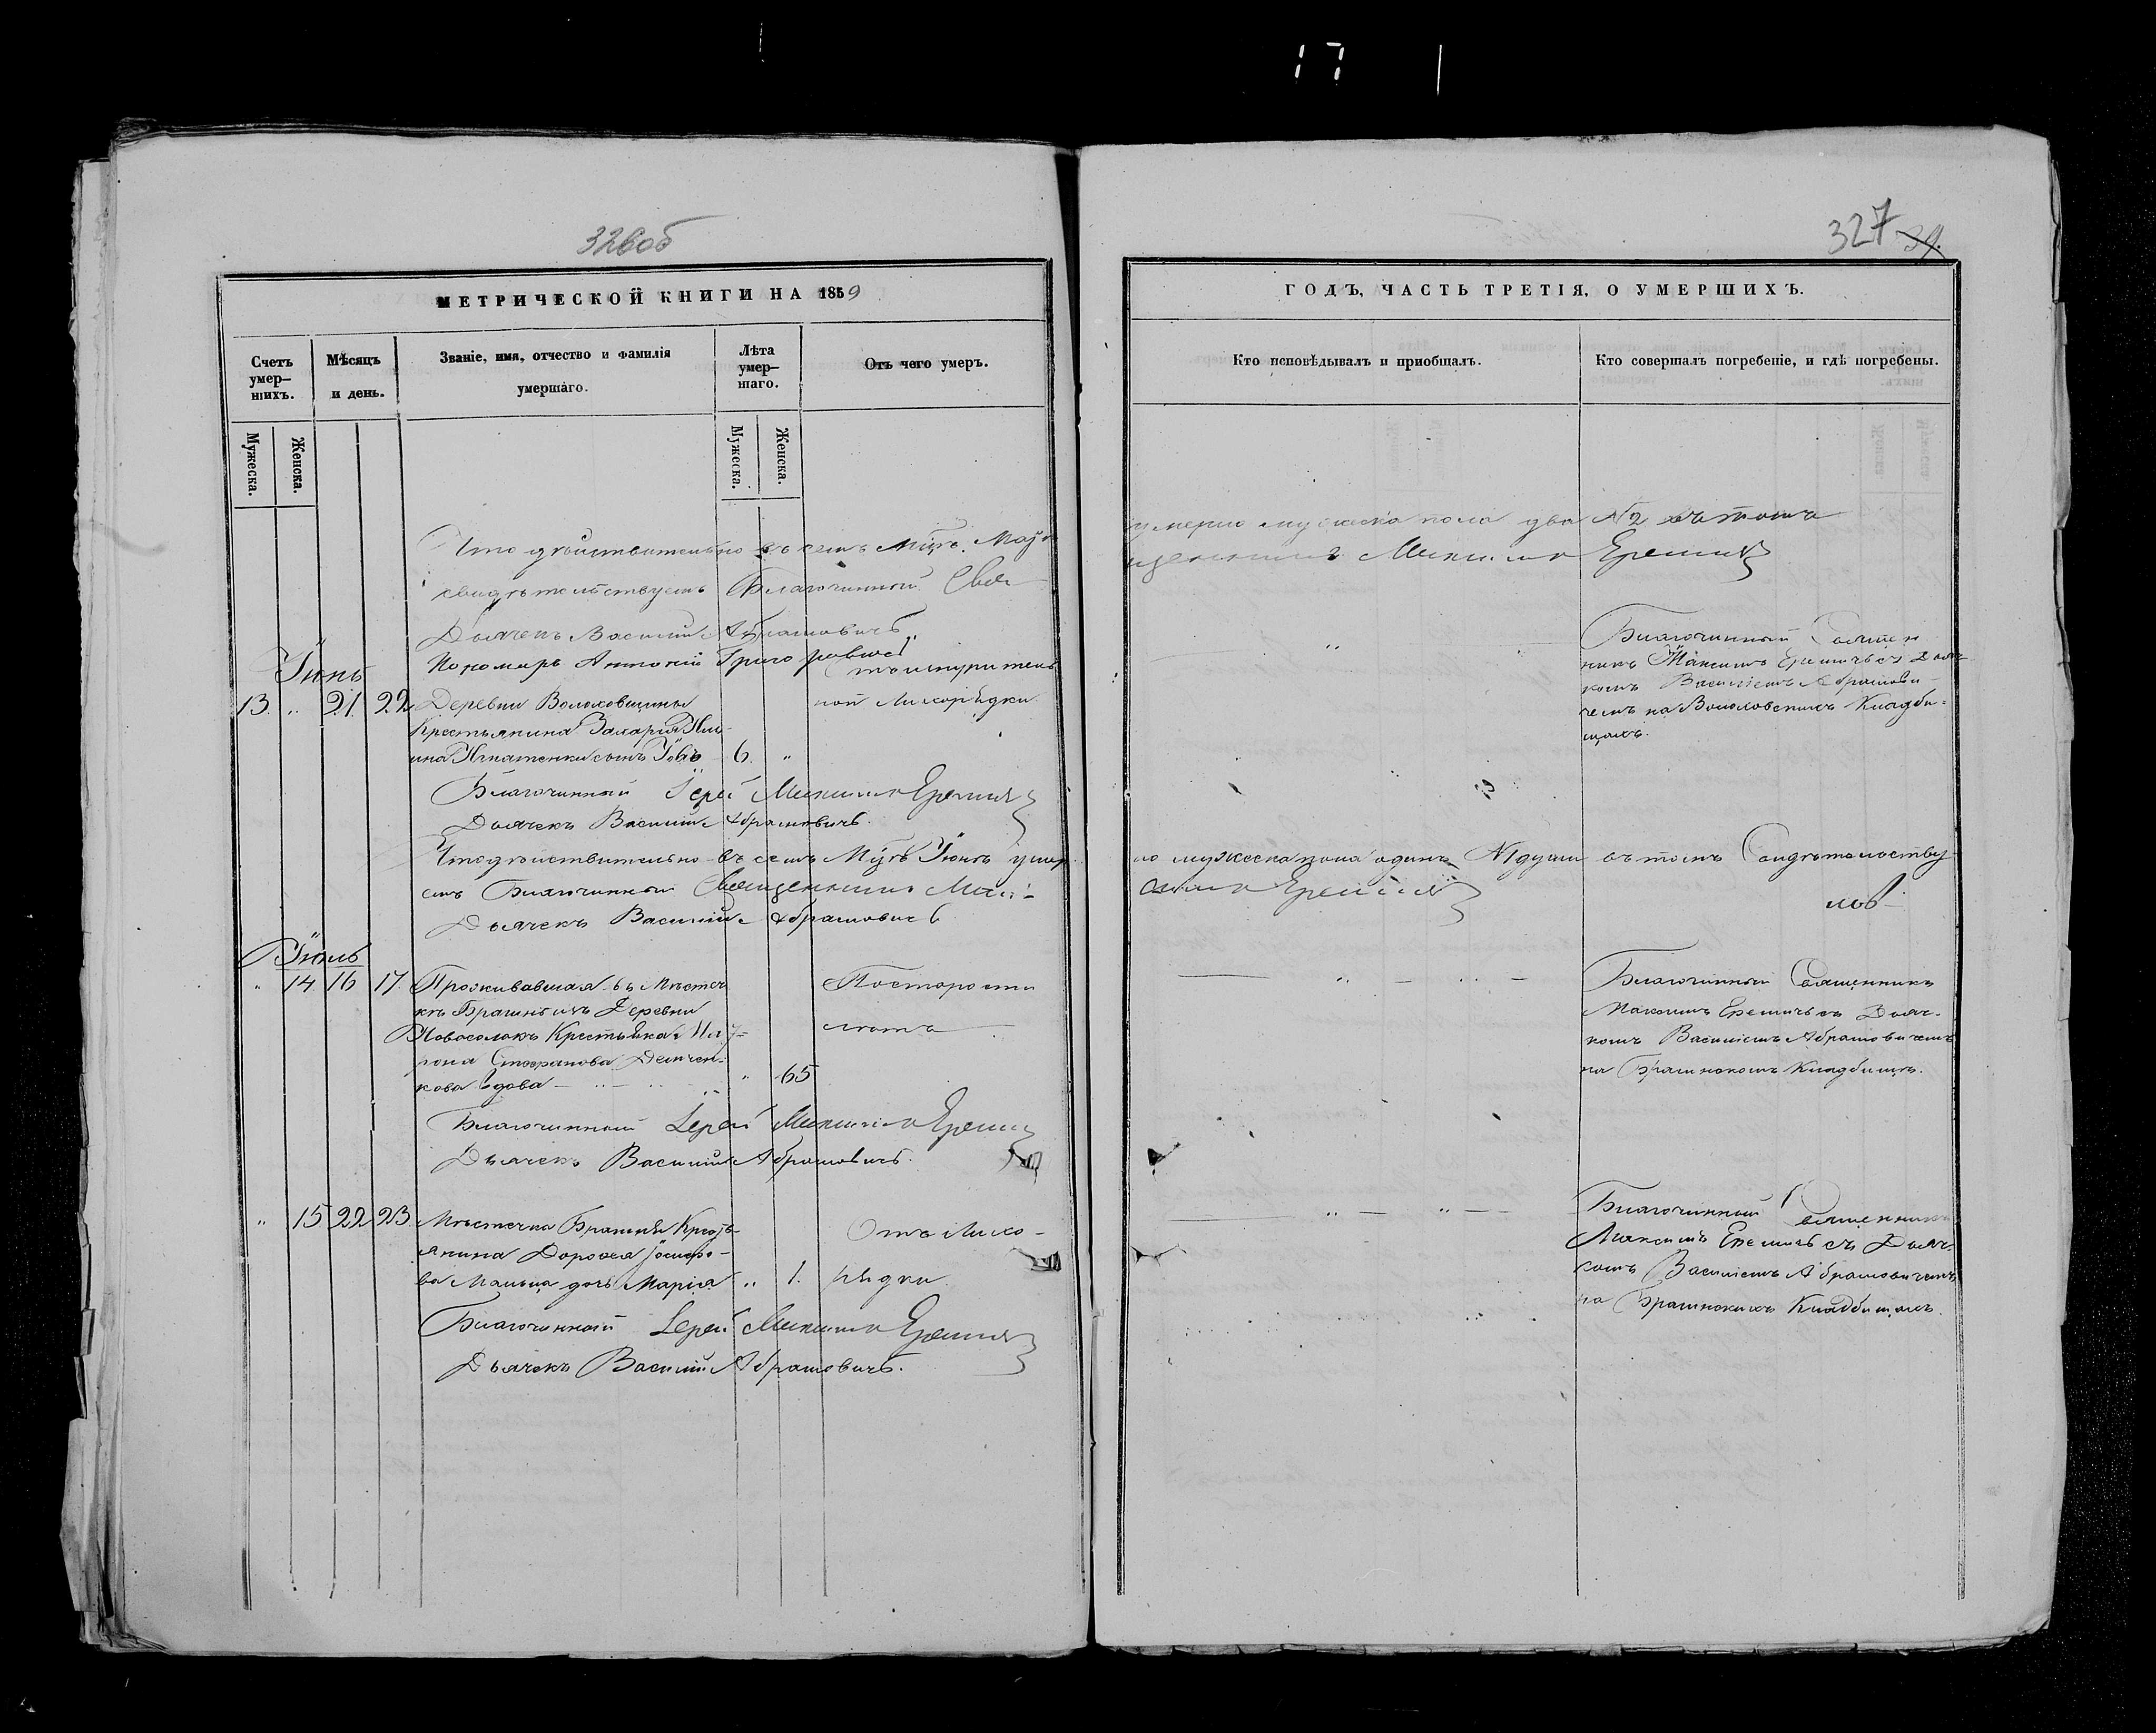 17
326об
МЕТРИЧЕСКОЙ КНИГИ НА 1859
Счетъ умер-шихъ.
Мѣсяцъ и день.
Званіе, имя, отчество и фамилія умершаго.
Лѣта умер-шаго.
Отъ чего умеръ.
Мужеска.
Женска.
Мужеска.
Женска.
Что дѣйствительно въ семъ Мцѣ. Маѣ
свидѣтельствуетъ Благочинный Свя
Дьячекъ Василій Абрамовичъ
Пономарь Антоній Григоровичъ
Іюнь
13. „ 21. 22 Деревни Волоховщины
ной Лихорѣдки
Крестьянина Захарія
сынъ 6. „
Благочинный Іерей Максимъ Еремичъ
Дьячекъ Василій Абрамовичъ.
Что дѣйствительно въ семъ Мцѣ Іюнѣ умер
етъ Благочинный Священникъ Мак
Дьячекъ Василій Абрамовичъ
Іюль
„ 14 16 17. Проживавшая въ Мѣстеч
Отъ старости
кѣ Брагинѣ изъ Деревни
Новоселокъ Крестьянка
лѣтъ
рона Стефанова Демчен-
кова Вдова „ 65
Благочинный Іерей Максимъ Еремичъ
Дьячекъ Василій Абрамовичъ.
„ 15 22 23. Мѣстечка Брагиня Кресть-
Отъ Лихо-
янина Дороѳея Іосифо-
ва дочь Марія „ 1. рѣдки
Благочинный Іерей Максимъ Еремичъ
Дьячекъ Василій Абрамовичъ.
327 39.
ГОДЪ, ЧАСТЬ ТРЕТІЯ, О УМЕРШИХЪ.
Кто исповѣдывалъ и пріобщалъ.
Кто совершалъ погребеніе, и гдѣ погребены.
умерло мужеска пола два №2 въ томъ
щенникъ Максимъ Еремичъ
Благочинный Священ
никъ Максимъ Еремичъ съ Дьяч
комъ Василіемъ Абрамови-
чемъ на Волоховскихъ Кладби-
щахъ.
ло мужеска пола одинъ №1 души въ томъ Свидѣтельству
симъ Еремичъ
Благочинный Священникъ
Максимъ Еремичъ съ Дьяч-
комъ Василіемъ Абрамовичемъ
на Брагинскомъ Кладбищѣ.
Благочинный Священникъ
Максимъ Еремичъ съ Дьяч-
комъ Василіемъ Абрамовичемъ
на Брагинскихъ Кладбищахъ.